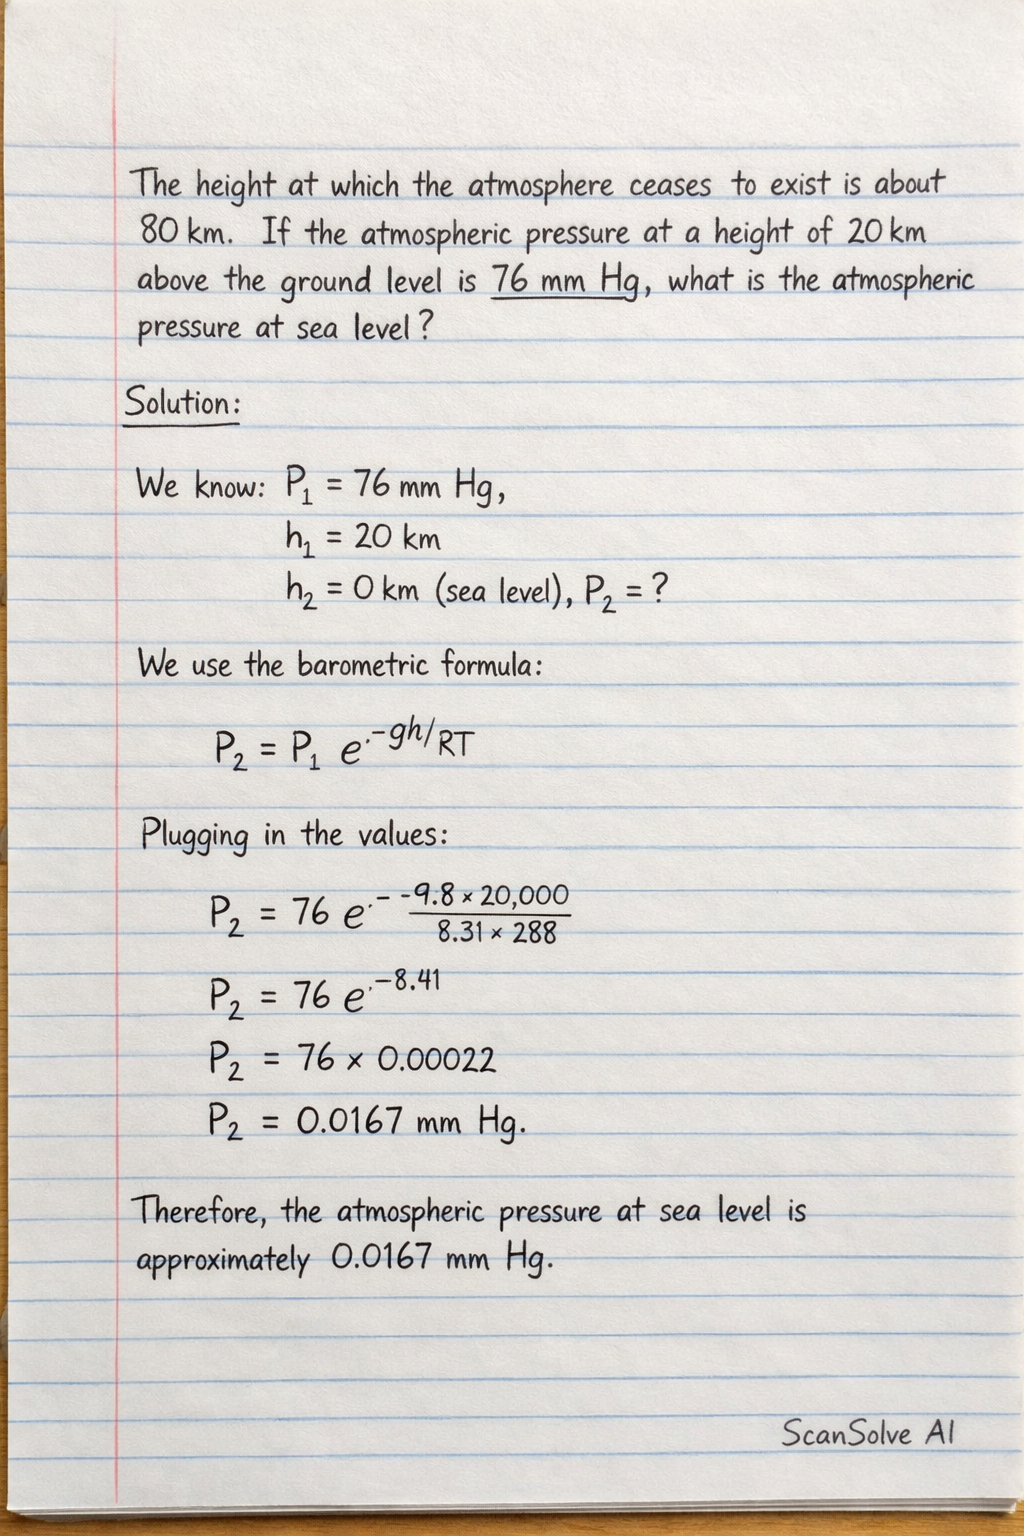 The height at which the atmosphere ceases to exist is about
80 km. If the atmospheric pressure at a height of 20 km
above the ground level is 76 mm Hg, what is the atmospheric
pressure at sea level?
Solution:
We know: P₁ = 76 mm Hg,
h₁ = 20 km
h₂ = 0 km (sea level), P₂ = ?
We use the barometric formula:
P₂ = P₁ e^-gh/RT
Plugging in the values:
P₂ = 76 e^- -9.8 × 20,000 / 8.31 × 288
P₂ = 76 e^-8.41
P₂ = 76 × 0.00022
P₂ = 0.0167 mm Hg.
Therefore, the atmospheric pressure at sea level is
approximately 0.0167 mm Hg.
ScanSolve AI